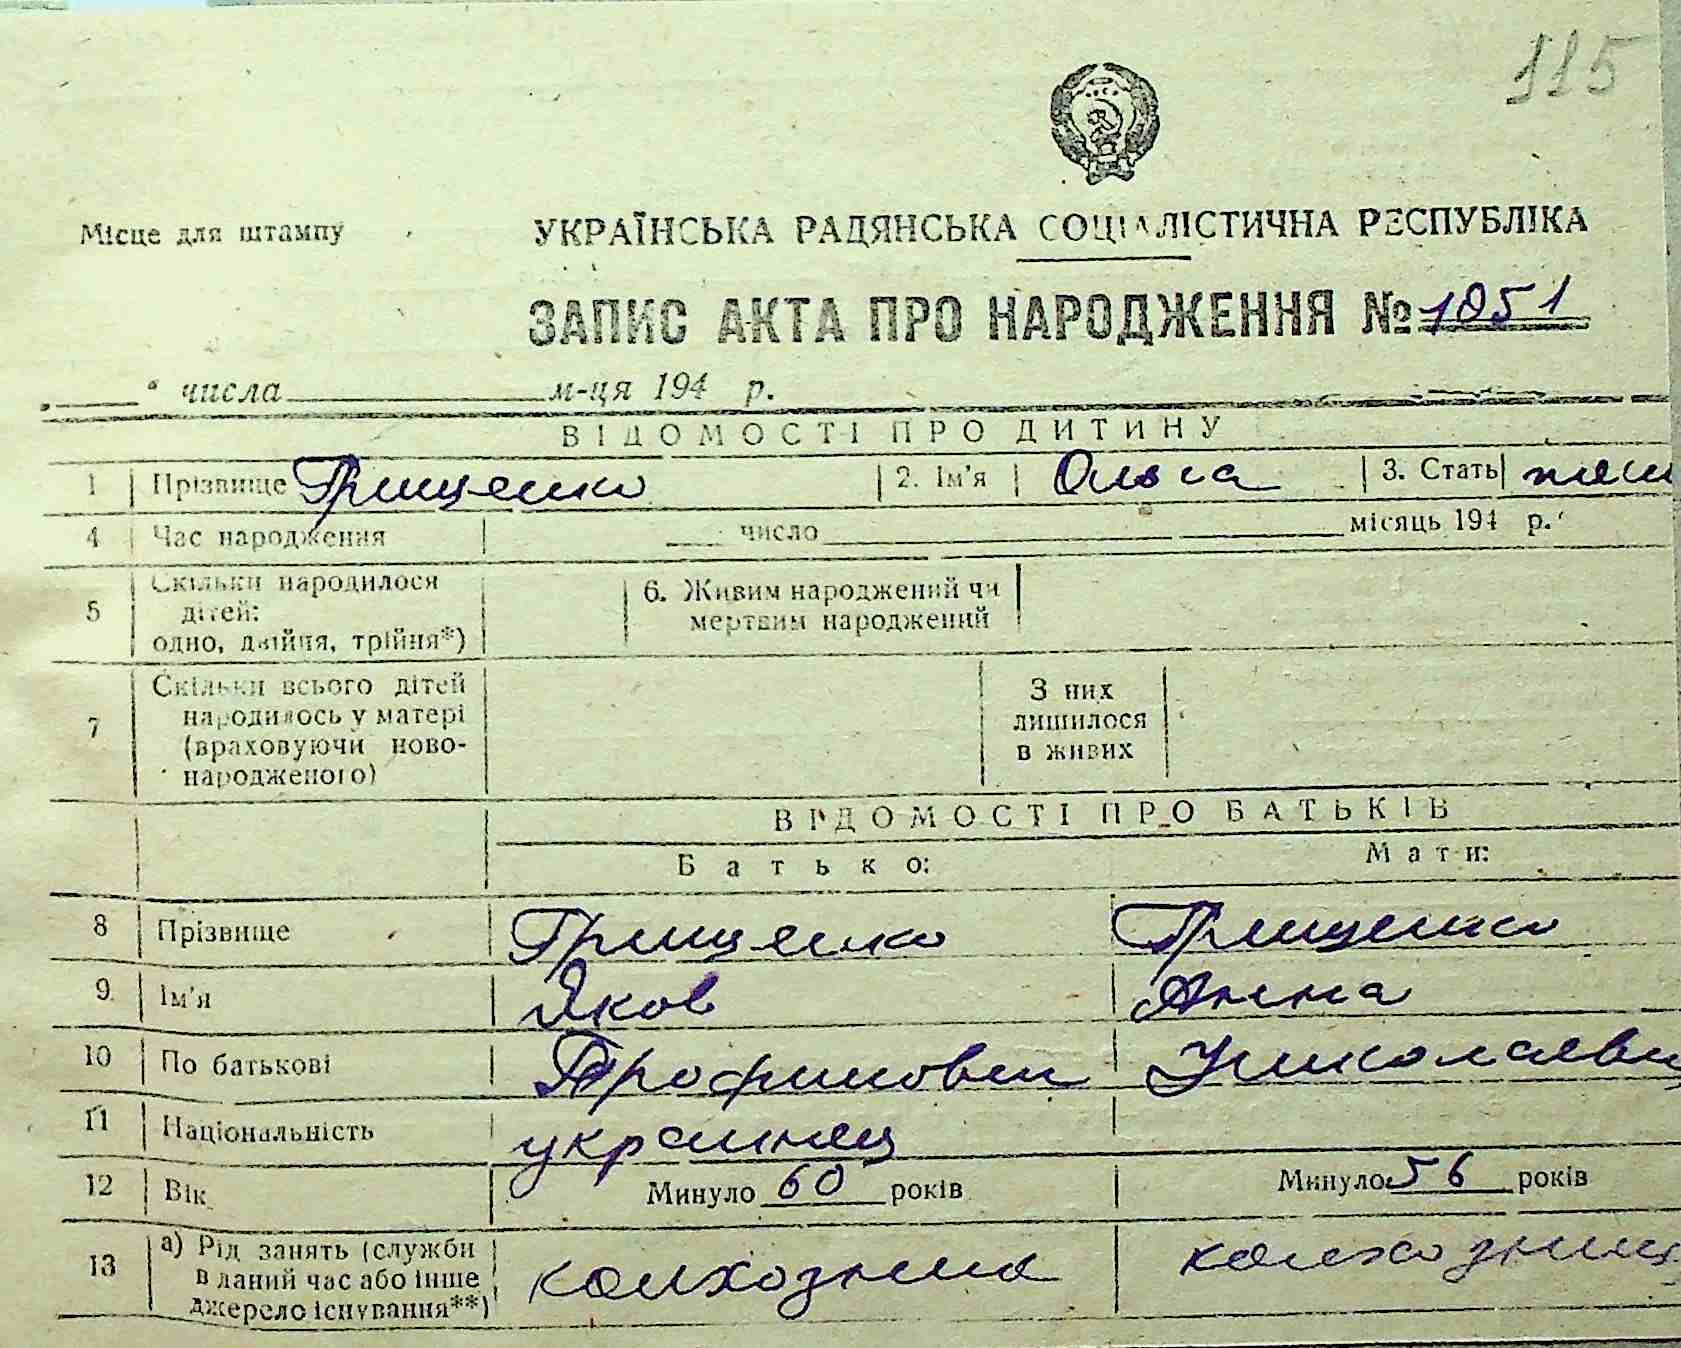 115
Місце для штампу
УКРАЇНСЬКА РАДЯНСЬКА СОЦІАЛІСТИЧНА РЕСПУБЛІКА
ЗАПИС АКТА ПРО НАРОДЖЕННЯ № 1051
„____“ числа ____ м-ця 194 р.
ВІДОМОСТІ ПРО ДИТИНУ
1 Прізвище Грищенко 2. Ім'я Ольга 3. Стать жен
4 Час народження ____ число ____ місяць 194 р.
5 Скільки народилося дітей: одно, двійня, трійня*) 6. Живим народжений чи мертвим народжений
7 Скільки всього дітей народилось у матері (враховуючи новонародженого) З них лишилося в живих
ВІДОМОСТІ ПРО БАТЬКІВ
Батько: Мати:
8 Прізвище Грищенко Грищенко
9 Ім'я Яков Анна
10 По батькові Трофимович Николаевн
11 Національність украинец
12 Вік Минуло 60 років Минуло 56 років
13 а) Рід занять (служби в даний час або інше джерело існування**) колхозник колхозниц